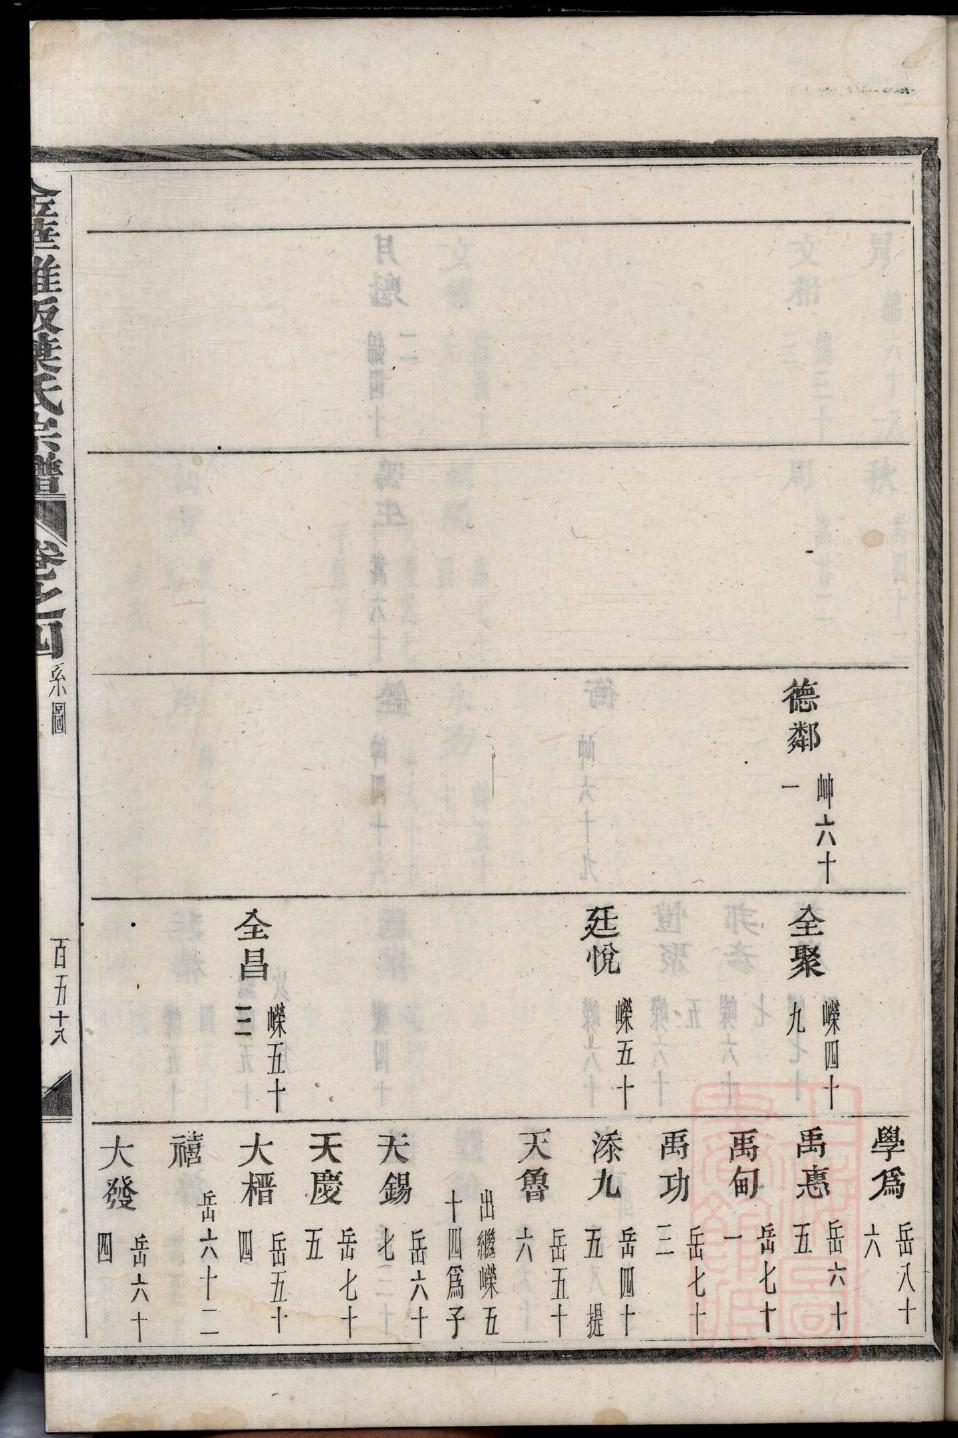 德鄰 岫六十一
全聚 嶸四十九
廷悅 嶸五十
全昌 嶸五十三
學爲 岳八十六
禹惪 岳六十五
禹甸 岳七十一
禹功 岳七十三
添九 岳四十五 提
天魯 岳五十六
出繼嶸五十四爲子
天錫 岳六十七
天慶 岳七十五
大榗 岳五十四
禧 岳六十二
大發 岳六十四
金華雅畈葉氏宗譜 卷之四 系圖 百五十八